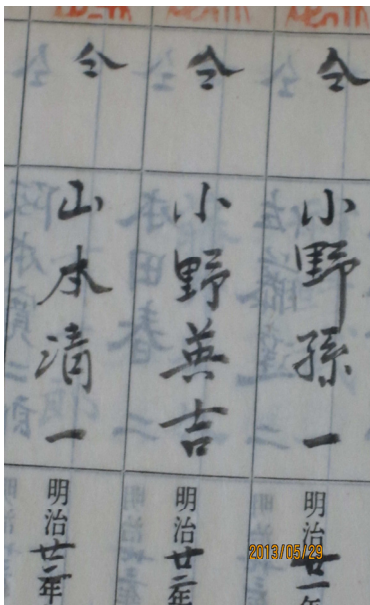 仝
小野孫一
明治廿一年
仝
小野英吉
明治廿二年
仝
山本清一
明治廿二年
2013/05/29